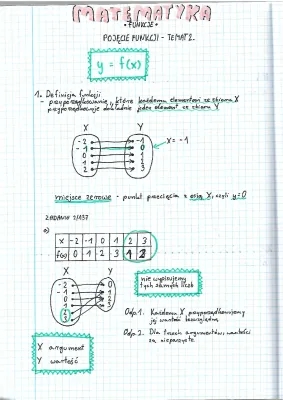 MATEMATYKA
• FUNKCJE •
POJĘCIE FUNKCJI - TEMAT 2.
y = f(x)
1. Definicja funkcji
- przyporządkowanie, które każdemu elementowi ze zbioru X
przyporządkowuje dokładnie jeden element ze zbioru Y
X Y
-2 -1
-1 0
0 1
1 2
2 3
y = -1
miejsce zerowe - punkt przecięcia z osią X, czyli y=0
ZADANIE 2/137
a)
X -2 -1 0 1 2 3
f(x) 0 1 2 3 1 2
X Y
-2 0
-1 1
0 2
1 3
2
3
nie wypisujemy
tych samych liczb
Odp 1. Każdemu X przyporządkowujemy
jej wartość
Odp 2. Dla trzech argumentów, wartości
są nieparzyste.
X argument
Y wartość